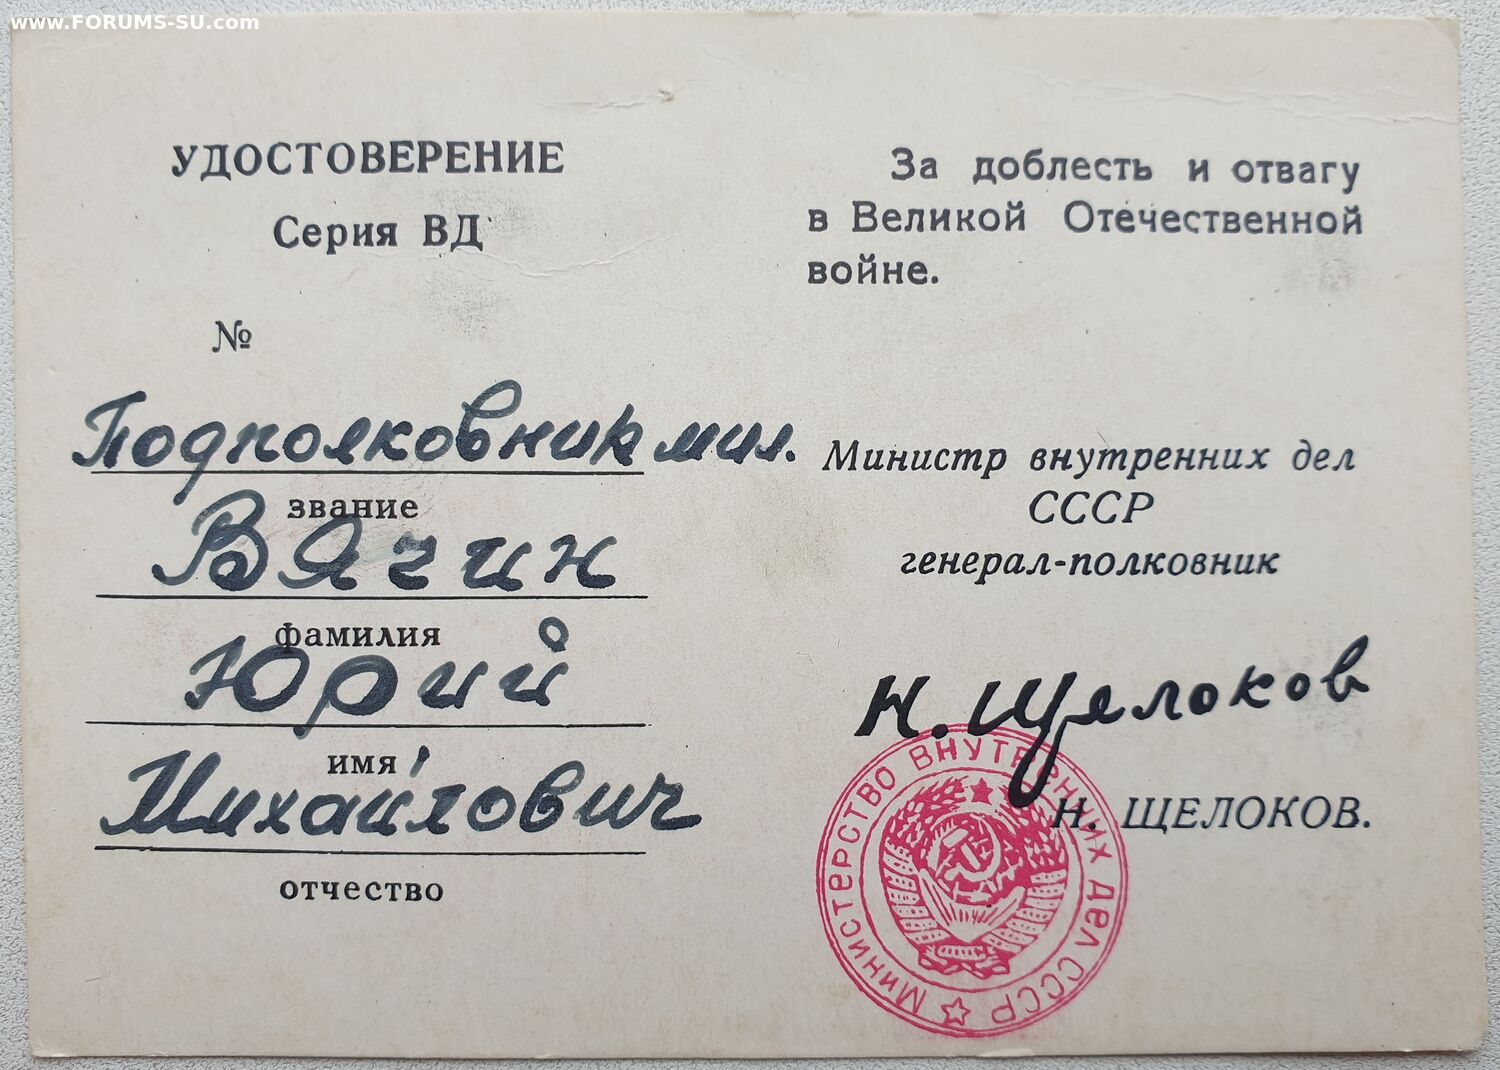 www.FORUMS-SU.com
УДОСТОВЕРЕНИЕ
Серия ВД
№
Подполковник мил.
звание
Вячин
фамилия
Юрий
имя
Михайлович
отчество
За доблесть и отвагу
в Великой Отечественной
войне.
Министр внутренних дел
СССР
генерал-полковник
Н. Щелоков
Н. ЩЕЛОКОВ.
МИНИСТЕРСТВО ВНУТРЕННИХ ДЕЛ СССР